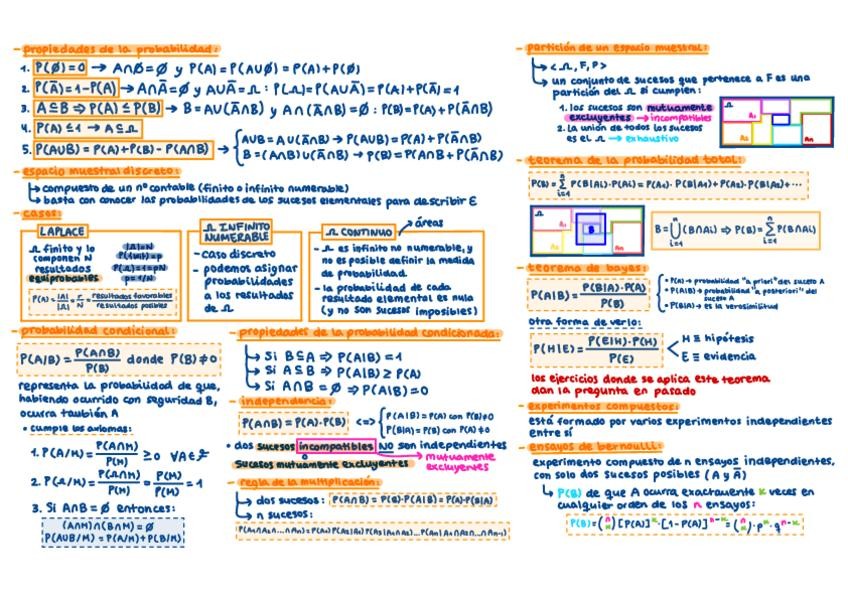 - propiedades de la probabilidad:
1. P(∅)=0 → A∩∅=∅ y P(A)=P(A∪∅)=P(A)+P(∅)
2. P(Ā)=1-P(A) → A∩Ā=∅ y A∪Ā=Ω : P(Ω)=P(A∪Ā)=P(A)+P(Ā)=1
3. A⊆B ⇒ P(A)≤P(B) → B=A∪(Ā∩B) y A∩(Ā∩B)=∅ : P(B)=P(A)+P(Ā∩B)
4. P(A)≤1 → A⊆Ω
5. P(A∪B)=P(A)+P(B)-P(A∩B) → A∪B=A∪(Ā∩B) → P(A∪B)=P(A)+P(Ā∩B)
B=(A∩B)∪(Ā∩B) → P(B)=P(A∩B)+P(Ā∩B)
- espacio muestral discreto:
↳ compuesto de un nº contable (finito o infinito numerable)
↳ basta con conocer las probabilidades de los sucesos elementales para describir E
- casos:
LAPLACE
Ω finito y lo
componen N
resultados
equiprobables
|Ω|=N
P({ω})=p
P(Ω)=1=pN
p=1/N
P(A)=|A|/|Ω|=r/N=resultados favorables/resultados posibles
Ω INFINITO
NUMERABLE
- caso discreto
- podemos asignar
probabilidades
a los resultados
de Ω
Ω CONTINUO → áreas
- Ω es infinito no numerable, y
no es posible definir la medida
de probabilidad.
- la probabilidad de cada
resultado elemental es nula
(y no son sucesos imposibles)
- probabilidad condicional:
P(A/B)=P(A∩B)/P(B) donde P(B)≠0
representa la probabilidad de que,
habiendo ocurrido con seguridad B,
ocurra también A
• cumple los axiomas:
1. P(A/M)=P(A∩M)/P(M) ≥0 ∀A∈F
2. P(Ω/M)=P(Ω∩M)/P(M)=P(M)/P(M)=1
3. Si A∩B=∅ entonces:
(A∩M)∩(B∩M)=∅
P(A∪B/M)=P(A/M)+P(B/M)
- propiedades de la probabilidad condicionada:
↳ Si B⊆A ⇒ P(A|B)=1
↳ Si A⊆B ⇒ P(A|B)≥P(A)
↳ Si A∩B=∅ ⇒ P(A|B)=0
- independencia:
P(A∩B)=P(A)·P(B) <=> P(A|B)=P(A) con P(B)≠0
P(B|A)=P(B) con P(A)≠0
• dos sucesos incompatibles NO son independientes
sucesos mutuamente excluyentes → mutuamente
excluyentes
- regla de la multiplicación:
↳ dos sucesos: P(A∩B)=P(B)·P(A|B)=P(A)·P(B|A)
↳ n sucesos:
- partición de un espacio muestral:
↳ <Ω, F, P>
↳ un conjunto de sucesos que pertenece a F es una
partición del Ω si cumplen:
1. los sucesos son mutuamente
excluyentes → incompatibles
2. la unión de todos los sucesos
es el Ω → exhaustivo
Ω
A₁
An
- teorema de la probabilidad total:
P(B)=∑ⁿᵢ₌₁ P(B|Aᵢ)·P(Aᵢ)=P(A₁)·P(B|A₁)+P(A₂)·P(B|A₂)+...
Ω
B
B=⋃ⁿᵢ₌₁(B∩Aᵢ) ⇒ P(B)=∑ⁿᵢ₌₁P(B∩Aᵢ)
- teorema de bayes:
P(A|B)=P(B|A)·P(A)/P(B)
• P(A)→ probabilidad "a priori" del suceso A
• P(A|B)→ probabilidad "a posteriori" del
suceso A
• P(B|A)→ es la verosimilitud
otra forma de verlo:
P(H|E)=P(E|H)·P(H)/P(E)
H ≡ hipótesis
E ≡ evidencia
los ejercicios donde se aplica este teorema
dan la pregunta en pasado
- experimentos compuestos:
está formado por varios experimentos independientes
entre sí
- ensayos de bernoulli:
experimento compuesto de n ensayos independientes,
con solo dos sucesos posibles (A y Ā)
↳ P(B) de que A ocurra exactamente k veces en
cualquier orden de los n ensayos:
P(B)=(n k)[P(A)]ᵏ·[1-P(A)]ⁿ⁻ᵏ=(n k)·pᵏ·qⁿ⁻ᵏ